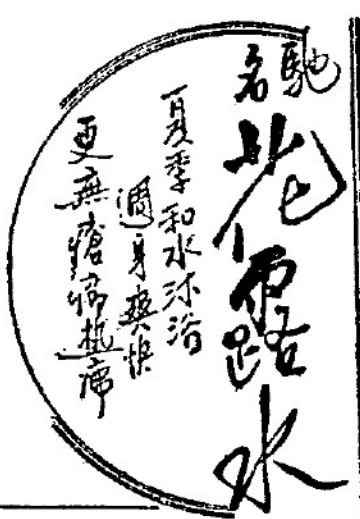 馳名
花露水
夏季和水沐浴
週身爽快
更無瘡